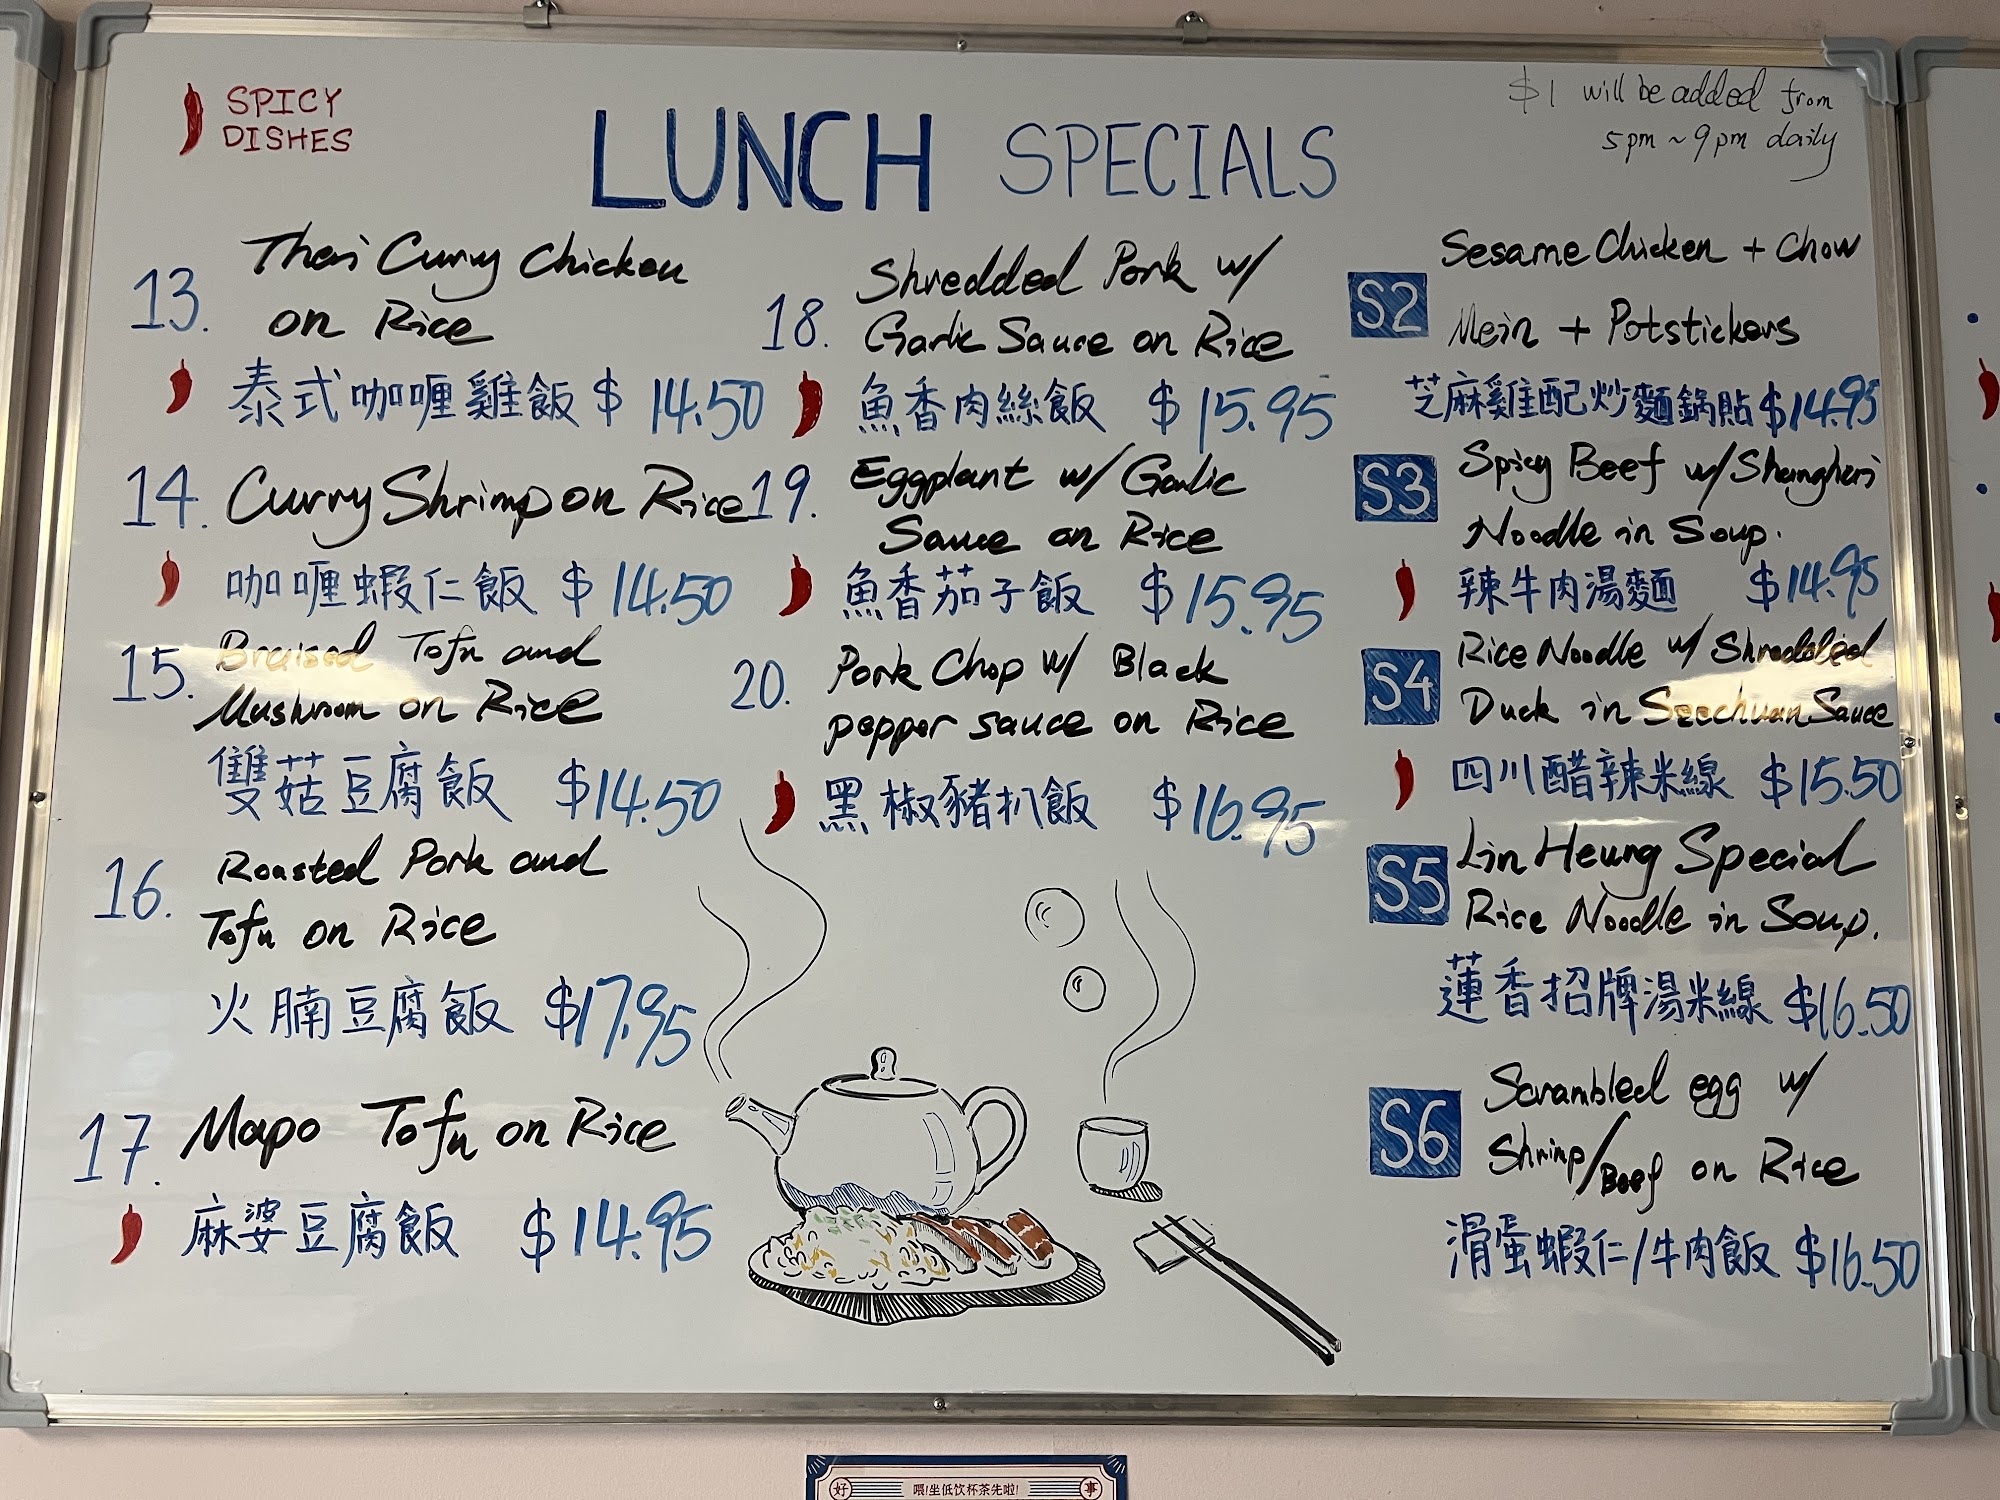 SPICY
DISHES
LUNCH SPECIALS
$1 will be added from
5pm ~ 9pm daily
13. Thai Curry Chicken
on Rice
泰式咖喱雞飯 $14.50
14. Curry Shrimp on Rice
咖喱蝦仁飯 $14.50
15. Braised Tofu and
Mushroom on Rice
雙菇豆腐飯 $14.50
16. Roasted Pork and
Tofu on Rice
火腩豆腐飯 $17.95
17. Mapo Tofu on Rice
麻婆豆腐飯 $14.95
18. Shredded Pork w/
Garlic Sauce on Rice
魚香肉絲飯 $15.95
19. Eggplant w/ Garlic
Sauce on Rice
魚香茄子飯 $15.95
20. Pork Chop w/ Black
pepper sauce on Rice
黑椒豬扒飯 $16.95
S2 Sesame Chicken + Chow
Mein + Potstickers
芝麻雞配炒麵鍋貼 $14.95
S3 Spicy Beef w/ Shanghai
Noodle in Soup.
辣牛肉湯麵 $14.95
S4 Rice Noodle w/ Shredded
Duck in Szechuan Sauce
四川醋辣米線 $15.50
S5 Lin Heung Special
Rice Noodle in Soup.
蓮香招牌湯米線 $16.50
S6 Scrambled egg w/
Shrimp/Beef on Rice
滑蛋蝦仁/牛肉飯 $16.50
好 喂!坐低饮杯茶先啦! 事